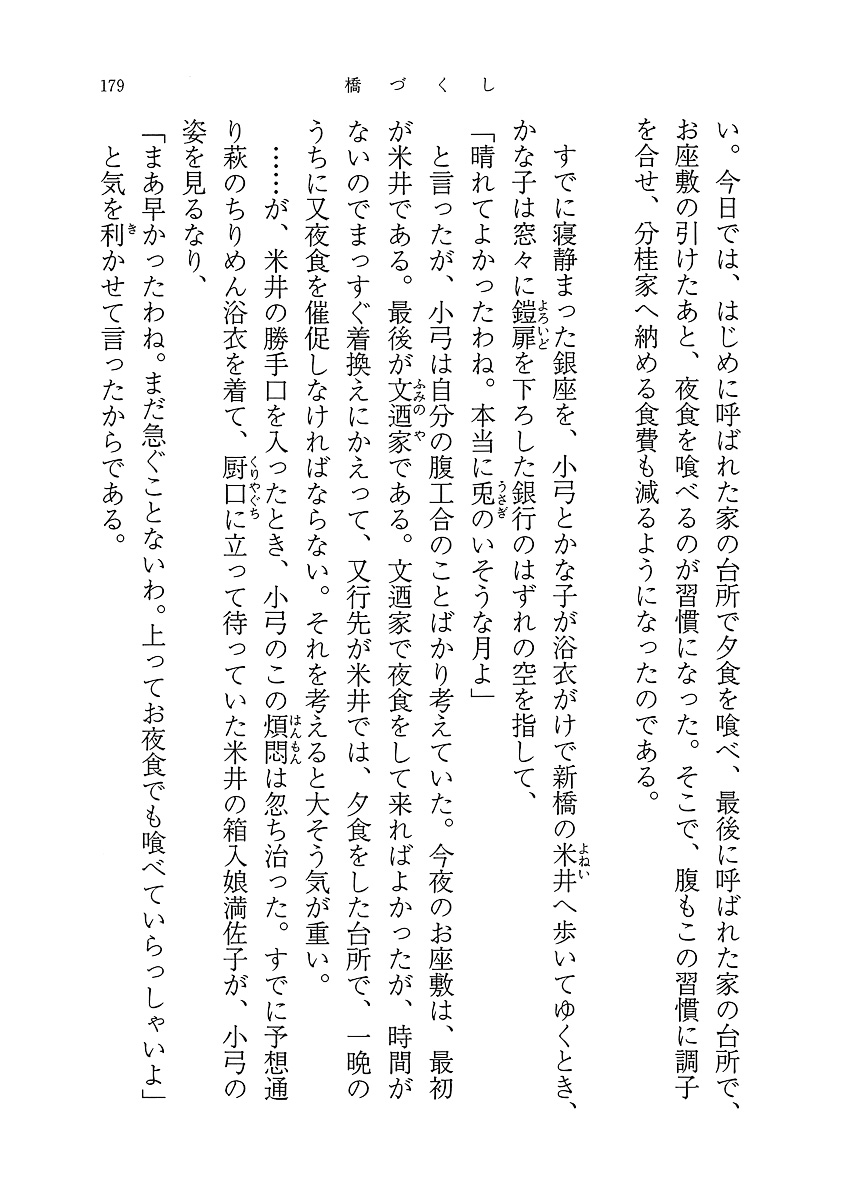 179
橋づくし
い。今日では、はじめに呼ばれた家の台所で夕食を喰べ、最後に呼ばれた家の台所で、
お座敷の引けたあと、夜食を喰べるのが習慣になった。そこで、腹もこの習慣に調子
を合せ、分桂家へ納める食費も減るようになったのである。
すでに寝静まった銀座を、小弓とかな子が浴衣がけで新橋の米井よねいへ歩いてゆくとき、
かな子は窓々に鎧扉よろいどを下ろした銀行のはずれの空を指して、
「晴れてよかったわね。本当に兎うさぎのいそうな月よ」
と言ったが、小弓は自分の腹工合のことばかり考えていた。今夜のお座敷は、最初
が米井である。最後が文廼家ふみのやである。文廼家で夜食をして来ればよかったが、時間が
ないのでまっすぐ着換えにかえって、又行先が米井では、夕食をした台所で、一晩の
うちに又夜食を催促しなければならない。それを考えると大そう気が重い。
……が、米井の勝手口を入ったとき、小弓のこの煩悶はんもんは忽ち治った。すでに予想通
り萩のちりめん浴衣を着て、厨口くりやぐちに立って待っていた米井の箱入娘満佐子が、小弓の
姿を見るなり、
「まあ早かったわね。まだ急ぐことないわ。上ってお夜食でも喰べていらっしゃいよ」
と気を利きかせて言ったからである。